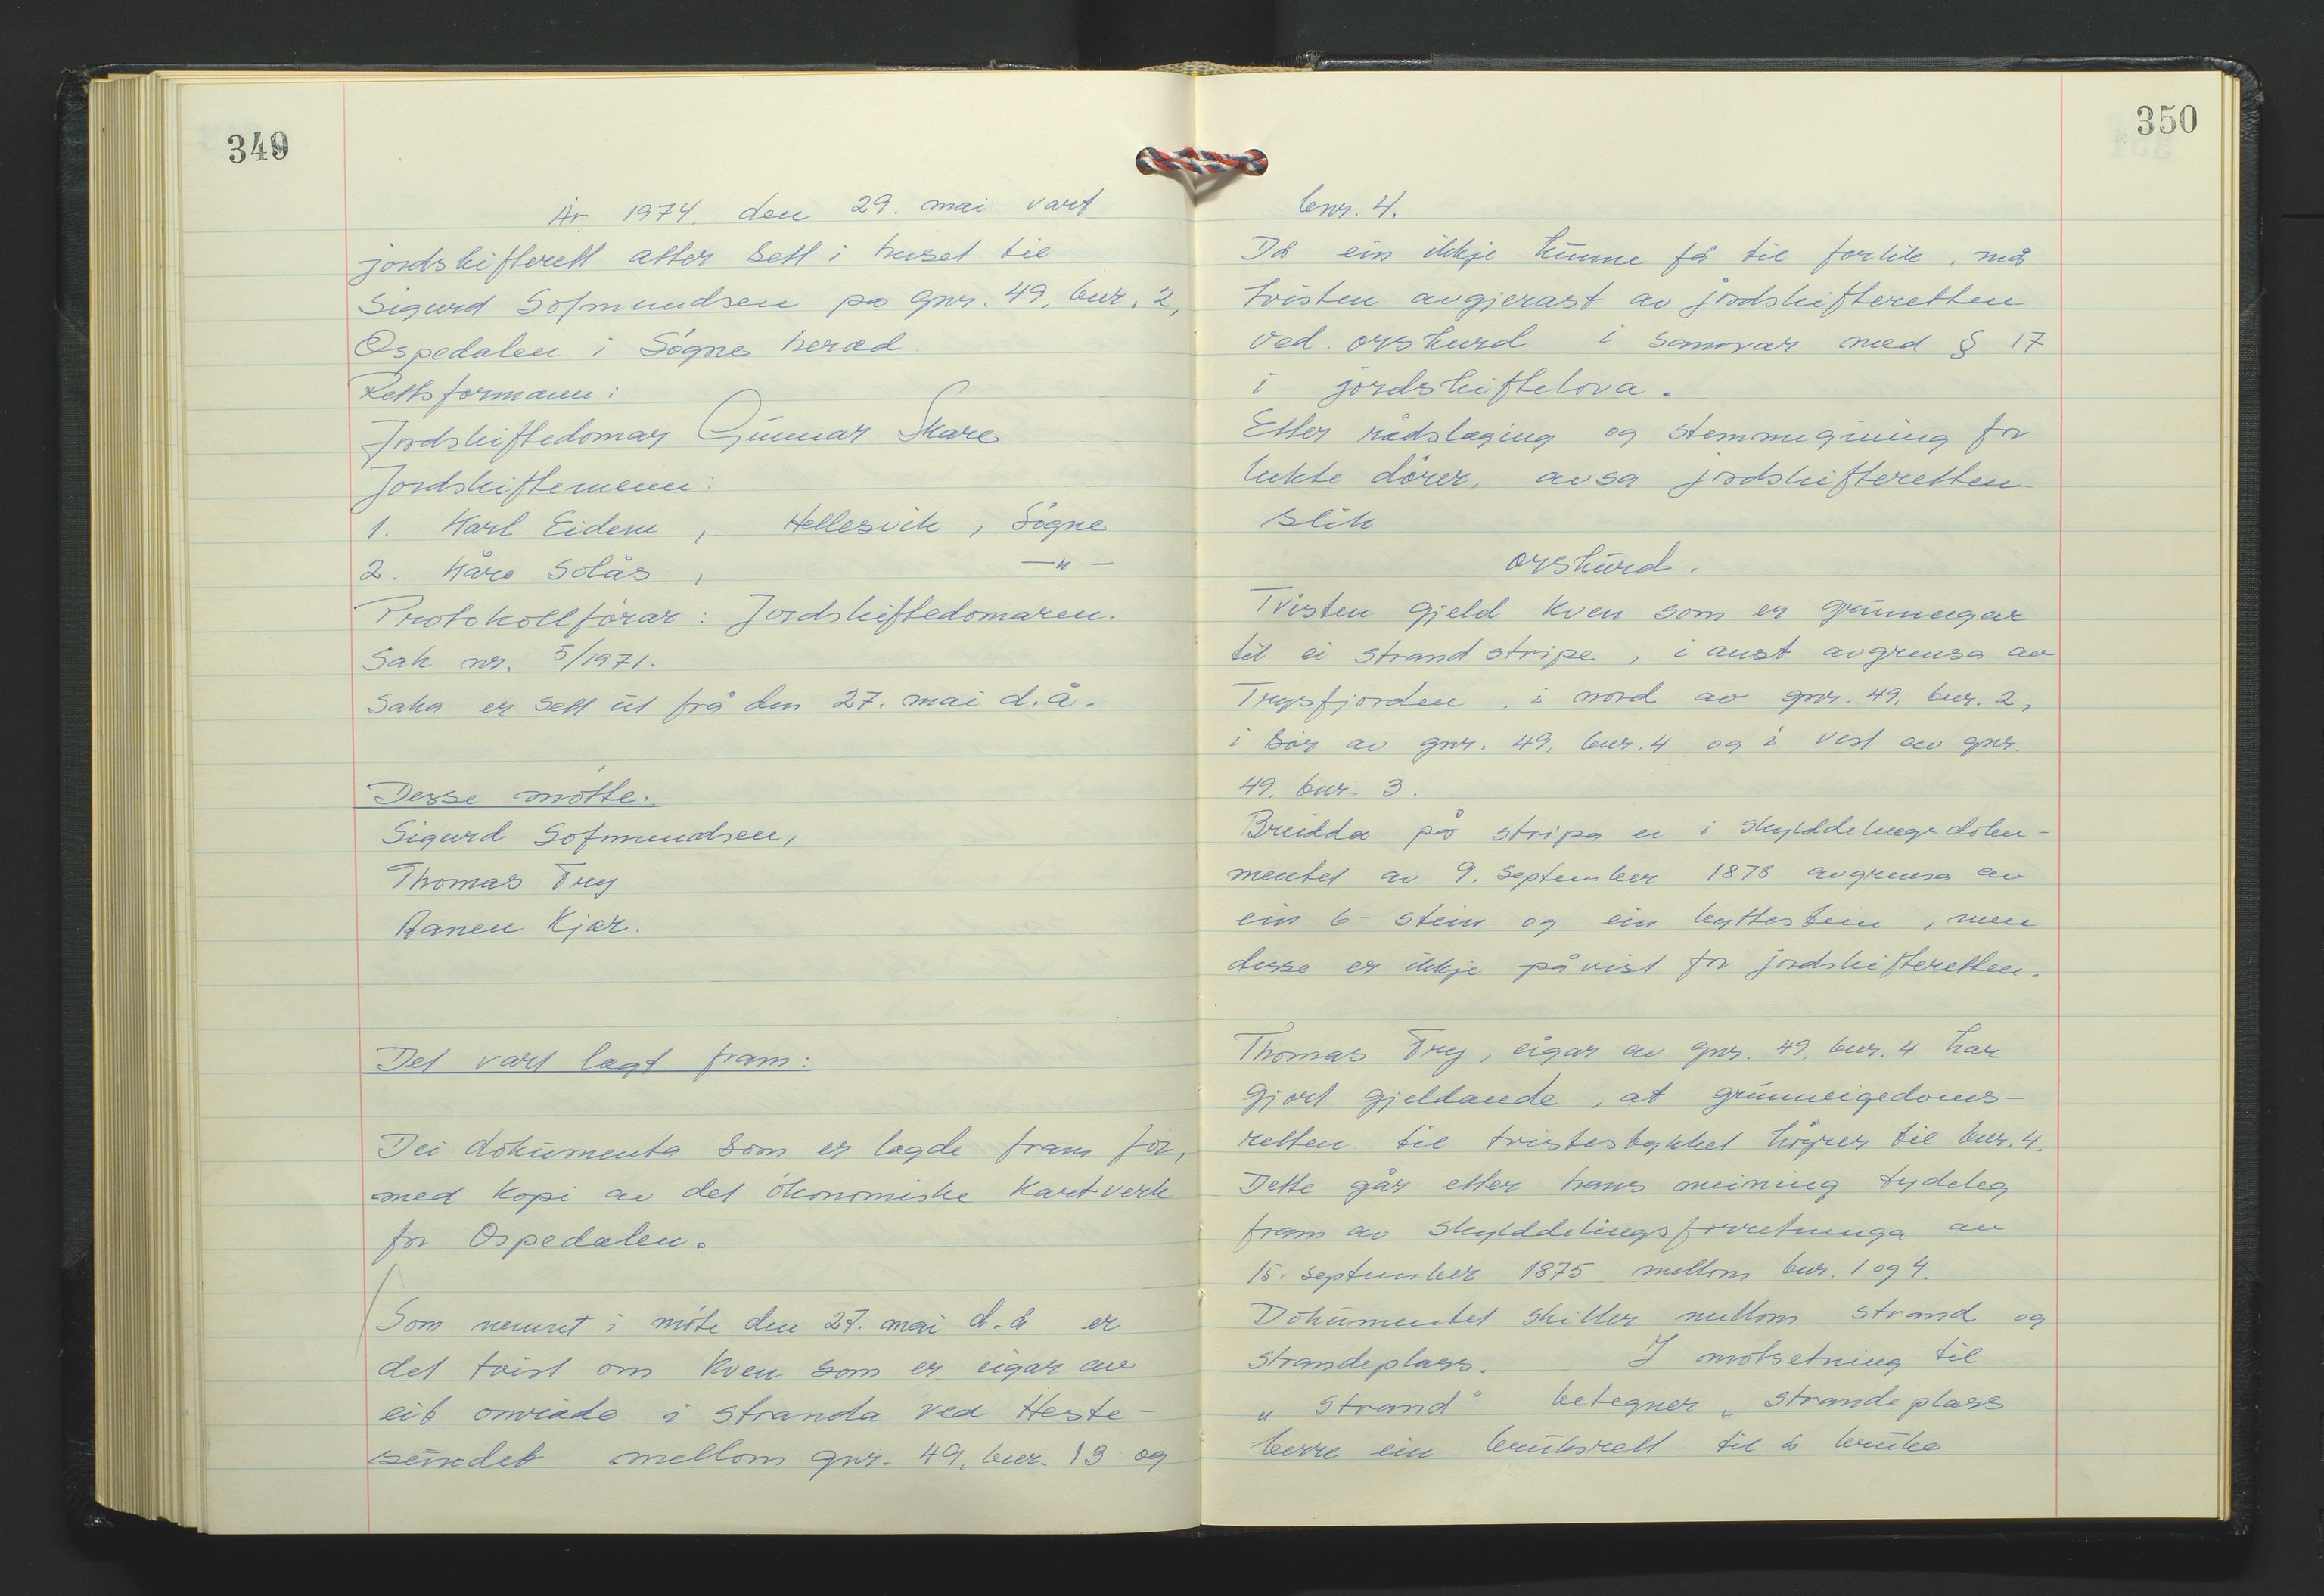 349
År 1974 den 29. mai vart
jordskifterett atter sett i huset til
Sigurd Sofmundsen på gnr. 49, bnr. 2,
Ospedalen i Søgne herad.
Rettsformann:
Jordskiftedomar Gunnar Skare
Jordskiftemenn:
1. Karl Eidem, Hellesvik, Søgne
2. Kåre Solås, —"—
Protokollförar: Jordskiftedomaren.
Sak nr. 5/1971.
Saka er sett ut frå den 27. mai d.å.
Desse møtte:
Sigurd Sofmundsen,
Thomas Try
Aanen Kjær.
Det vart lagt fram:
Dei dokumenta som er lagde fram før,
med kopi av det økonomiske kartverk
for Ospedalen.
Som nemnt i møte den 27. mai d.å er
det tvist om kven som er eigar av
eit område i stranda ved Heste-
sundet mellom gnr. 49, bnr. 13 og
350
bnr. 4.
Då ein ikkje kunne få til forlik, må
tvisten avgjerast av jordskifteretten
ved orskurd i samsvar med § 17
i jordskiftelova.
Etter rådslaging og stemmegiving for
lukte dører, avsa jordskifteretten
slik
orskurd.
Tvisten gjeld kven som er grunneigar
til ei strandstripe, i aust avgrensa av
Trysfjorden, i nord av gnr. 49, bnr. 2,
i sør av gnr. 49, bnr. 4 og i vest av gnr.
49, bnr. 3.
Breidda på stripa er i skylddelingsdoku-
mentet av 9. september 1878 avgrensa av
ein b- stein og ein byttestein, men
desse er ikkje påvist for jordskifteretten.
Thomas Try, eigar av gnr. 49, bnr. 4 har
gjort gjeldande, at grunneigedoms-
retten til tvistestykket høyrer til bnr. 4.
Dette går etter hans meining tydeleg
fram av skylddelingsforretninga av
15. september 1875 mellom bnr. 1 og 4.
Dokumentet skiller mellom strand og
strandeplass. I motsetning til
„strand" betegner „strandeplass
berre ein bruksrett til å bruke